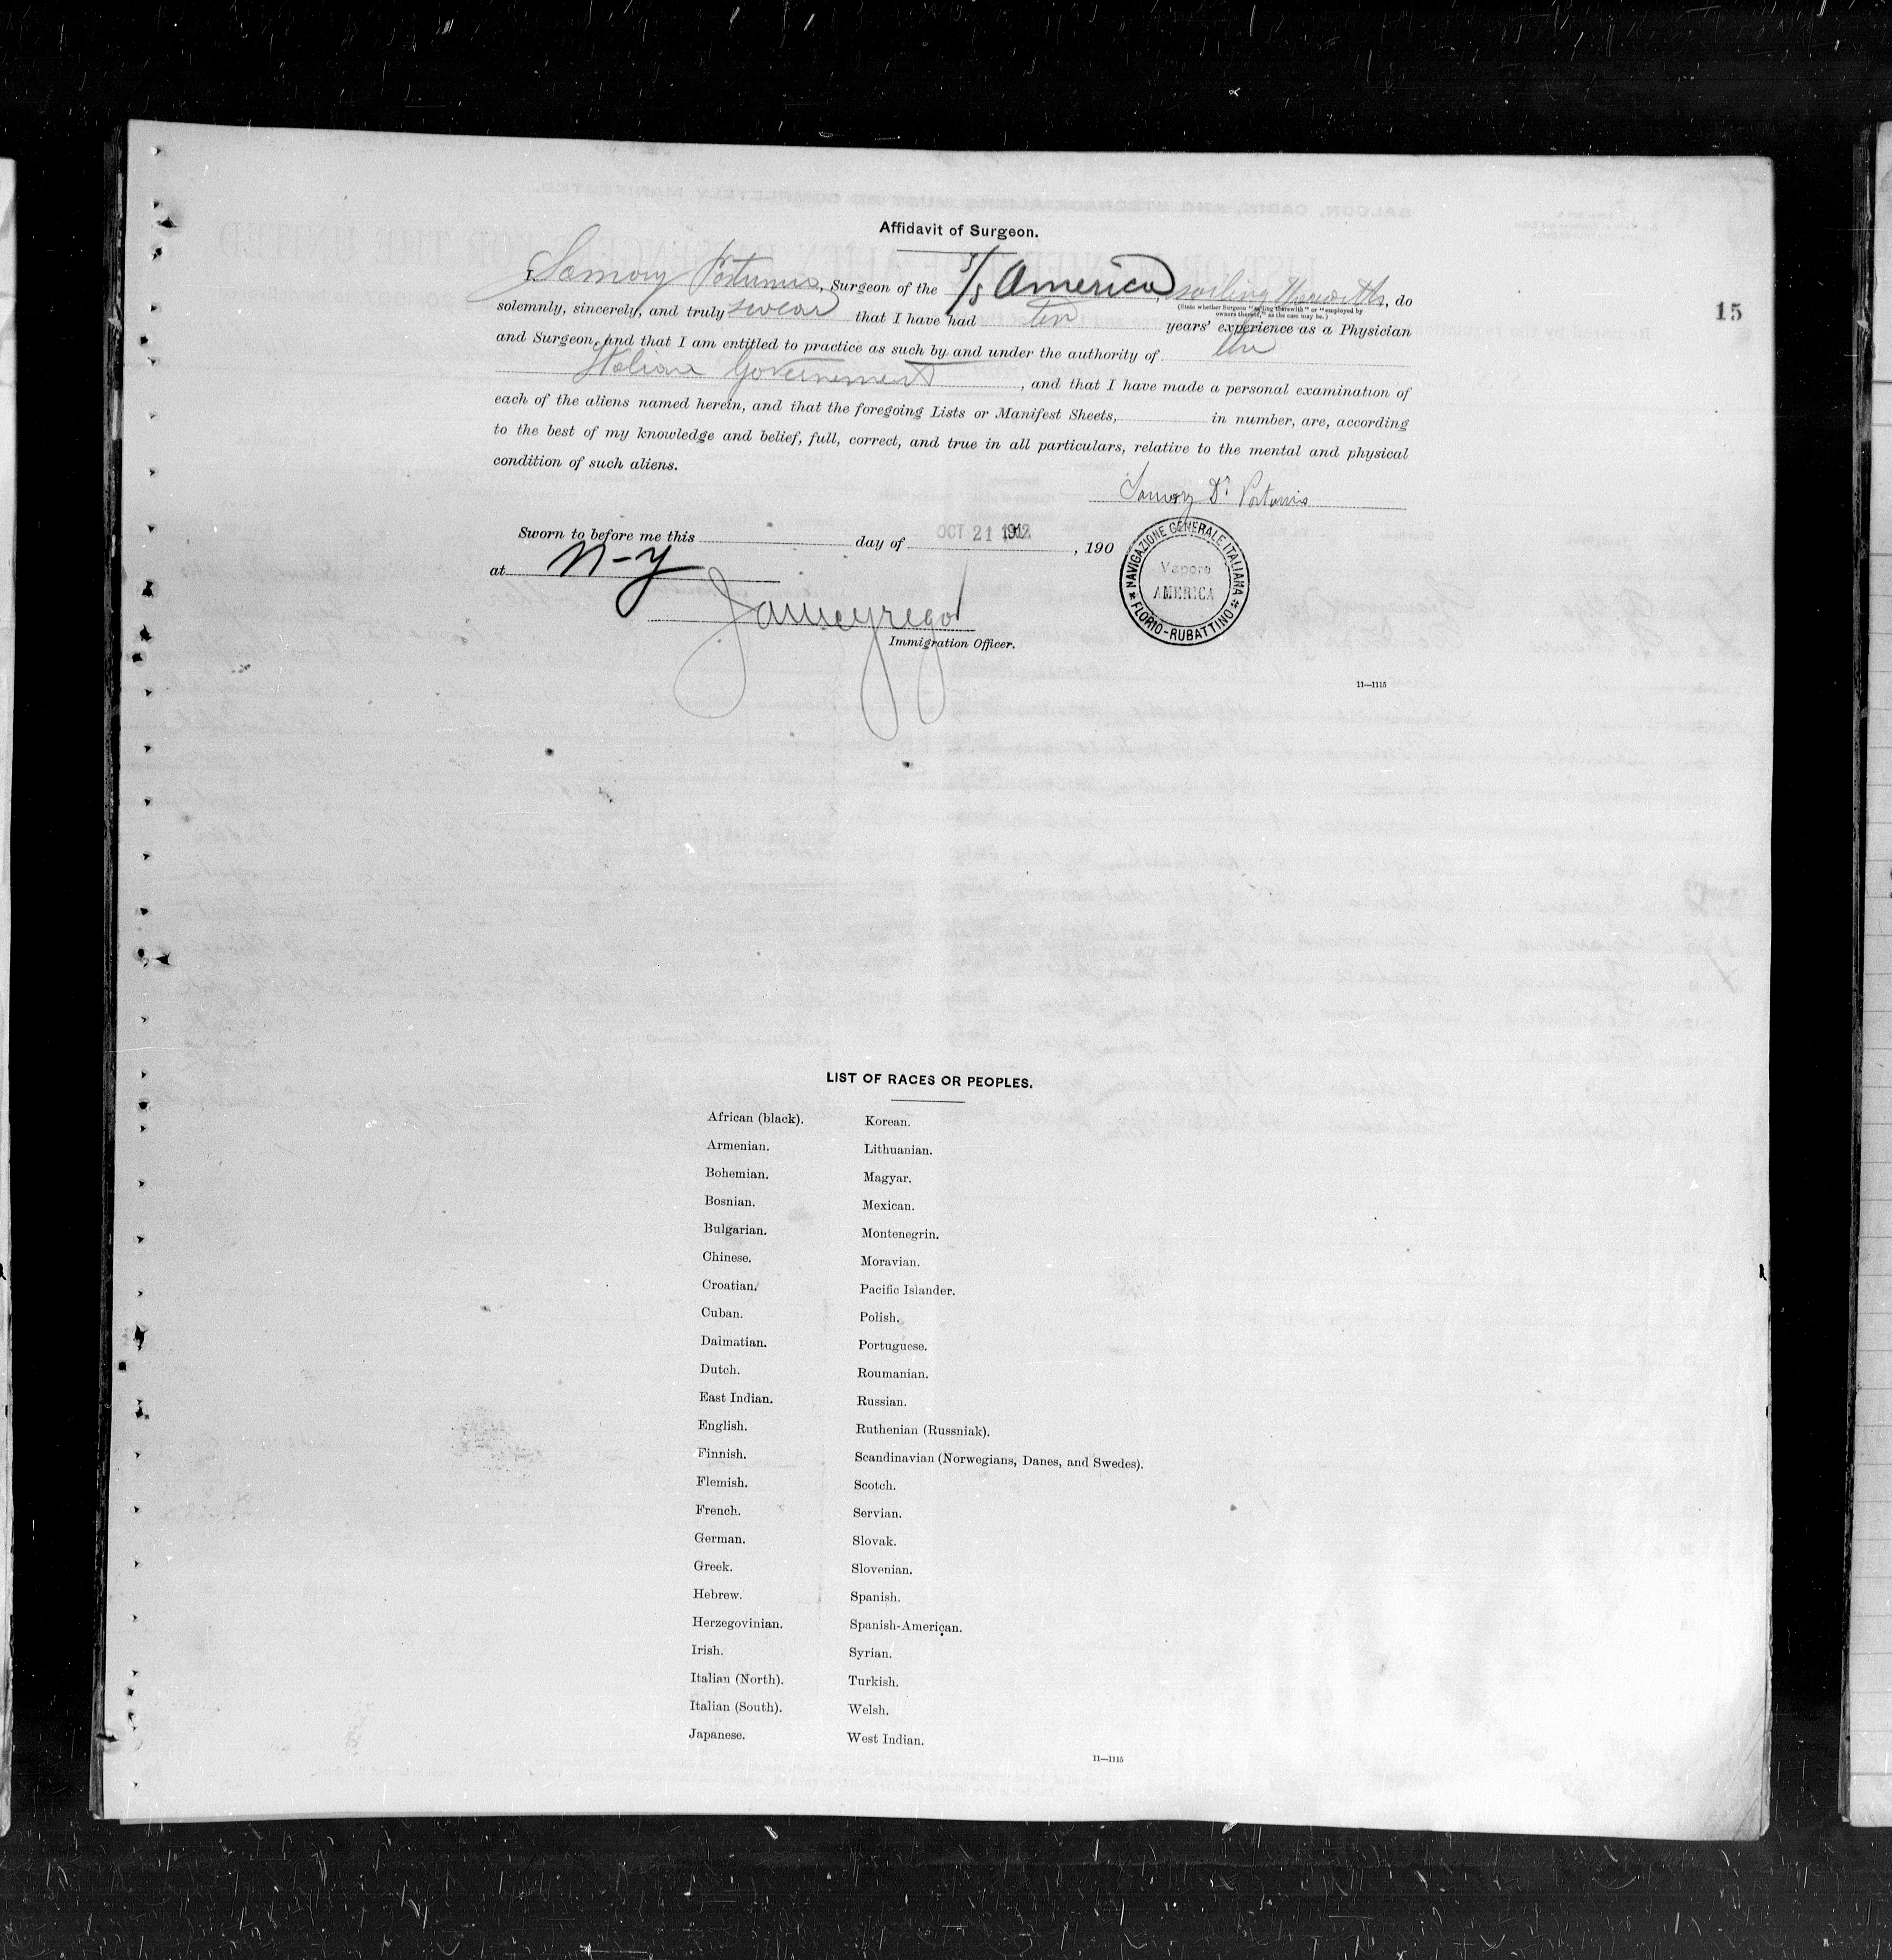 Affidavit of Surgeon.
I, Samory Portunis, Surgeon of the S/S America, sailing therewith, do
(State whether Surgeon "sailing therewith" or "employed by
owners thereof," as the case may be.)
solemnly, sincerely, and truly swear that I have had ten years' experience as a Physician
and Surgeon, and that I am entitled to practice as such by and under the authority of the
Italian Government, and that I have made a personal examination of
each of the aliens named herein, and that the foregoing Lists or Manifest Sheets, in number, are, according
to the best of my knowledge and belief, full, correct, and true in all particulars, relative to the mental and physical
condition of such aliens.
15
Samory Dr
Sworn to before me this day of OCT 21 1912, 190
at N-Y
Immigration Officer.
NAVIGAZIONE GENERALE ITALIANA
Vapore
AMERICA
* FLORIO-RUBATTINO *
11—1115
LIST OF RACES OR PEOPLES.
African (black).
Armenian.
Bohemian.
Bosnian.
Bulgarian.
Chinese.
Croatian.
Cuban.
Dalmatian.
Dutch.
East Indian.
English.
Finnish.
Flemish.
French.
German.
Greek.
Hebrew.
Herzegovinian.
Irish.
Italian (North).
Italian (South).
Japanese.
Korean.
Lithuanian.
Magyar.
Mexican.
Montenegrin.
Moravian.
Pacific Islander.
Polish.
Portuguese.
Roumanian.
Russian.
Ruthenian (Russniak).
Scandinavian (Norwegians, Danes, and Swedes).
Scotch.
Servian.
Slovak.
Slovenian.
Spanish.
Spanish-American.
Syrian.
Turkish.
Welsh.
West Indian.
11—1115